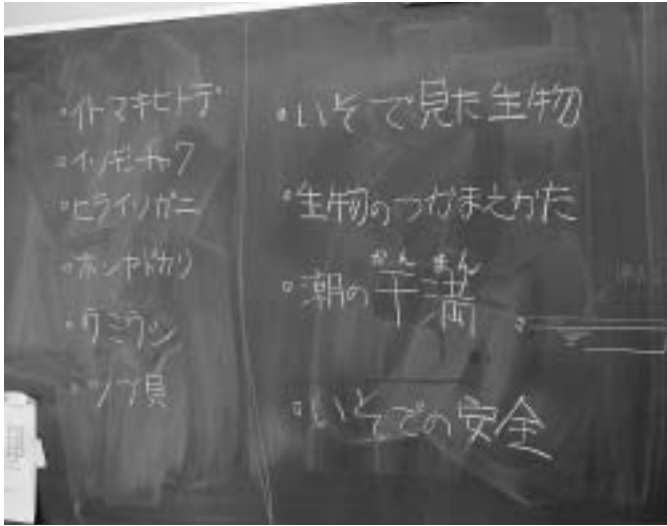 ・イトマキヒトデ
・イソギンチャク
・ヒライソガニ
・ホンヤドカリ
・ウミウシ
・ツブ貝
・いそで見た生物
・生物のつかまえかた
かん まん
・潮の干満
・いそでの安全